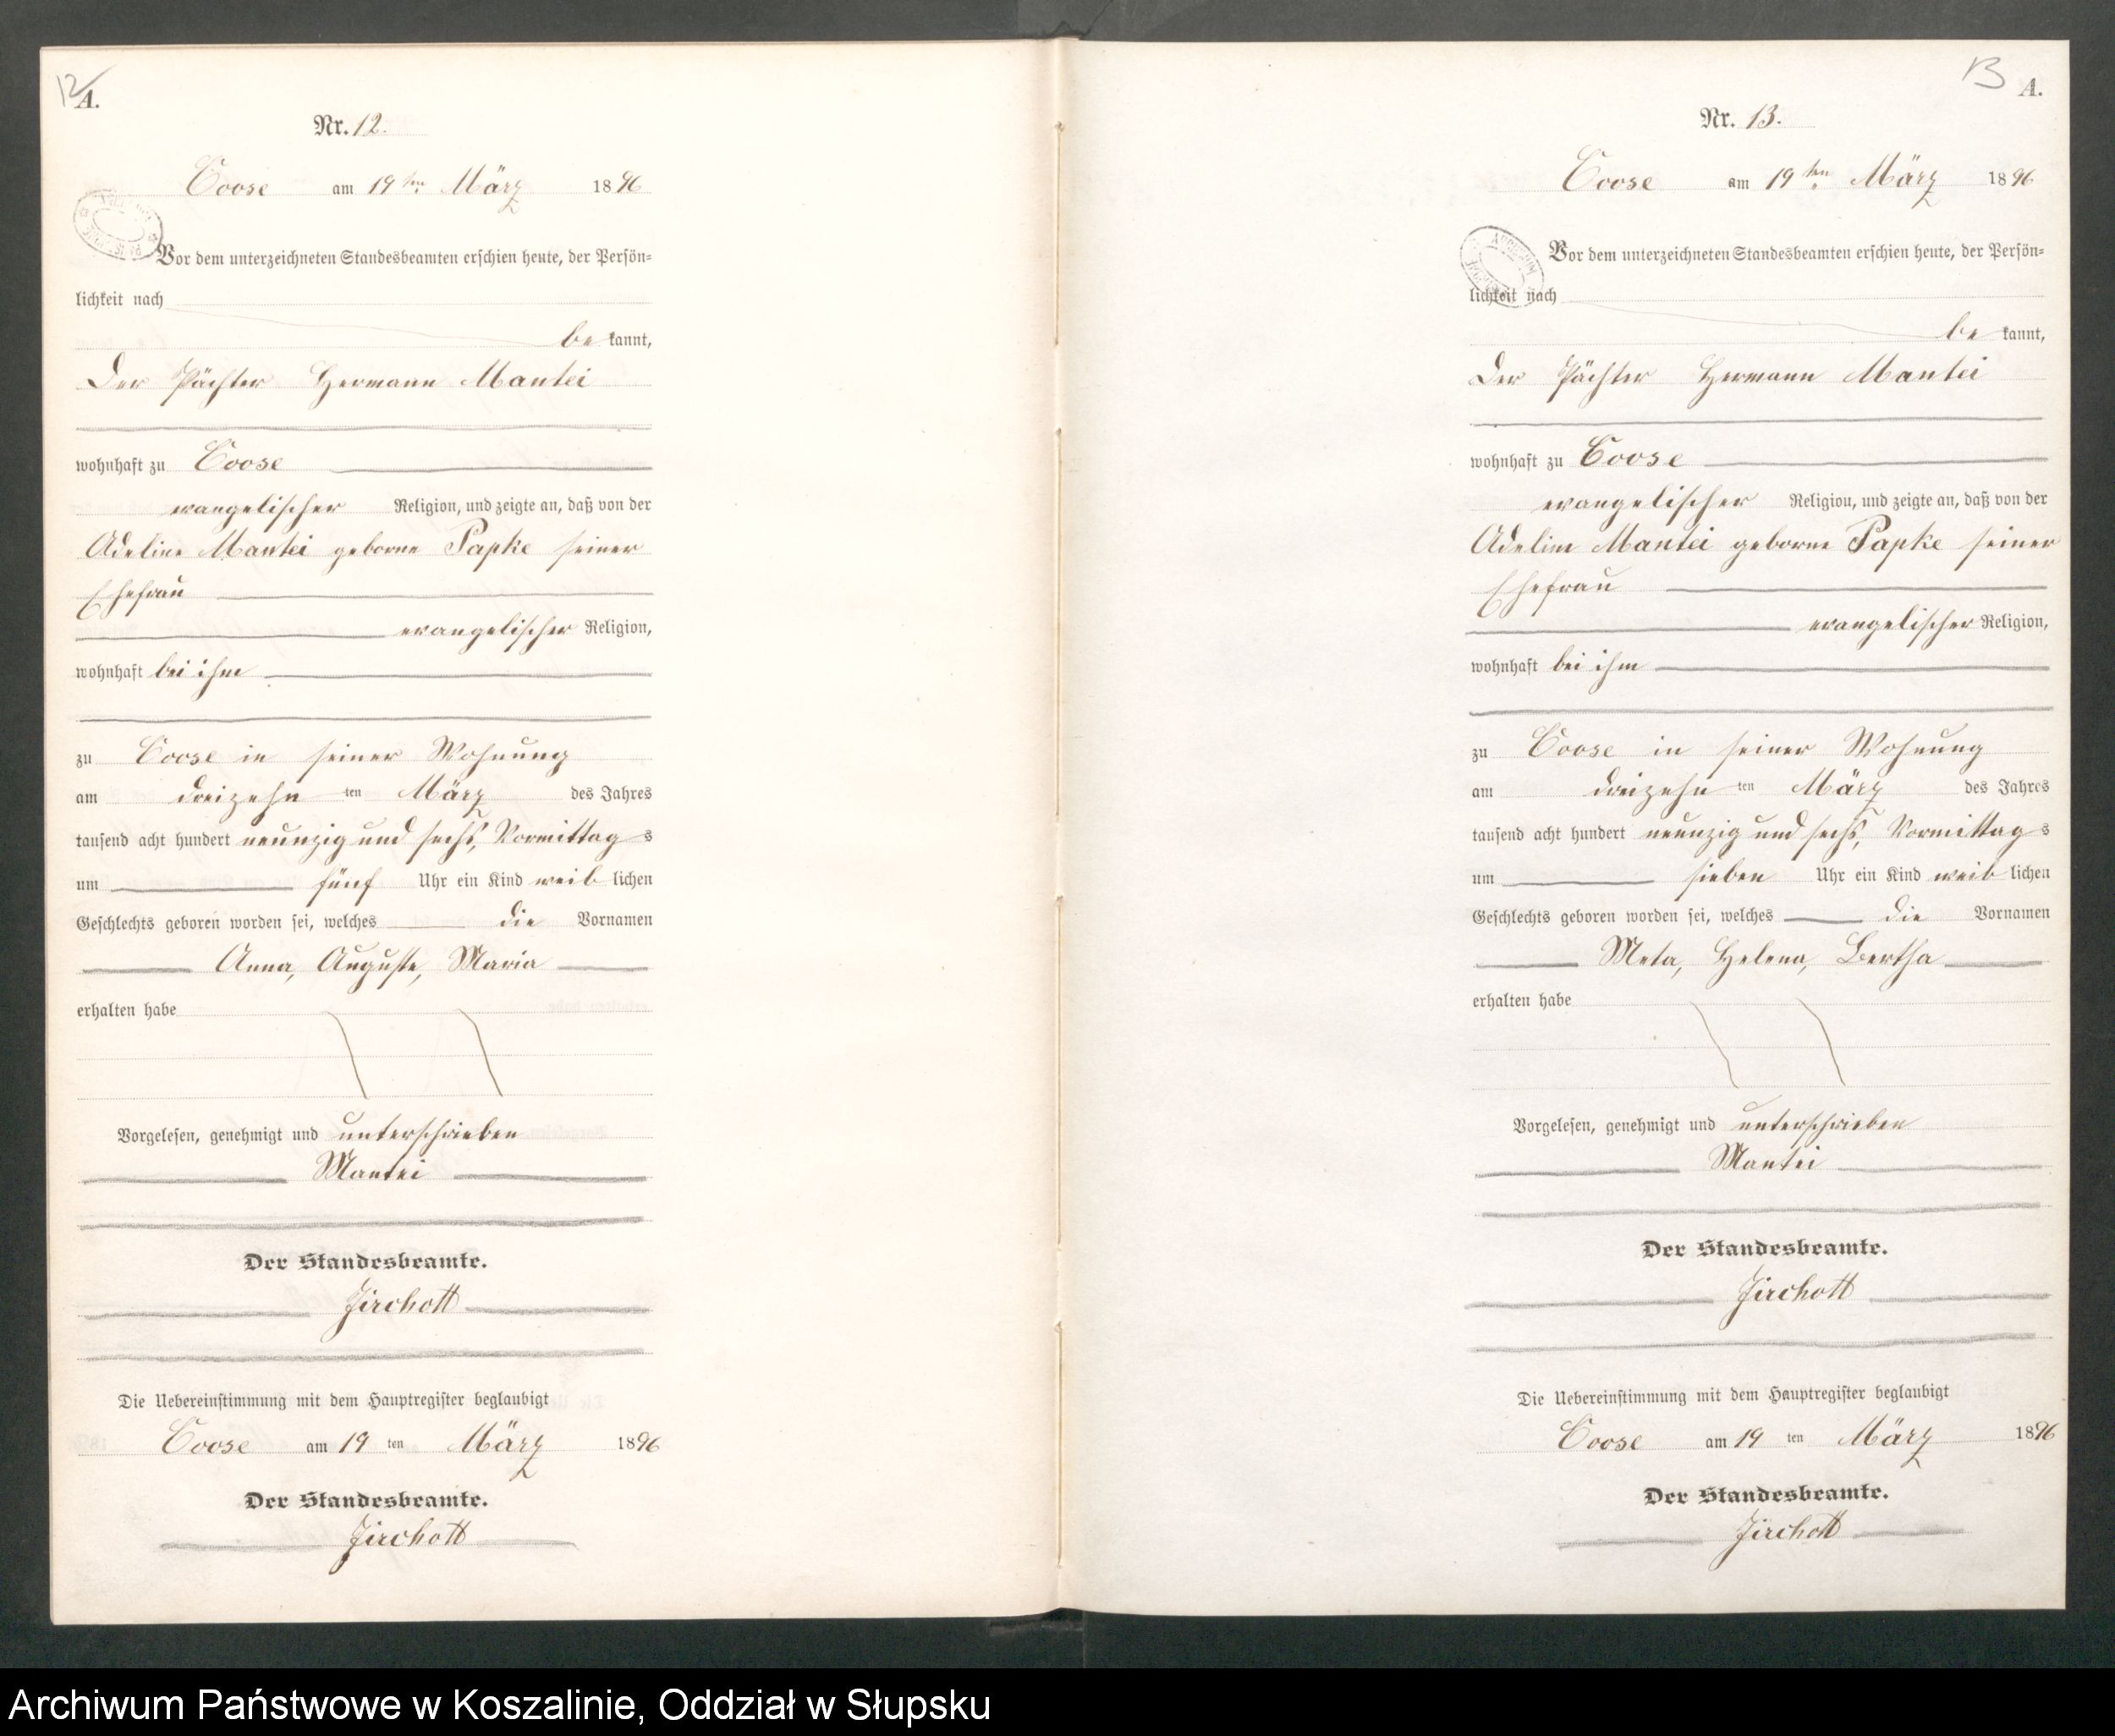 12
A.
Nr. 12.
Coose am 19ten März 1896
Vor dem unterzeichneten Standesbeamten erschien heute, der Persön-
lichkeit nach
be kannt,
Der Pächter Hermann Mantei
wohnhaft zu Coose
evangelischer Religion, und zeigte an, daß von der
Adeline Mantei geborne Papke seiner
Ehefrau
evangelischer Religion,
wohnhaft bei ihm
zu Coose in seiner Wohnung
am dreizehn ten März des Jahres
tausend acht hundert neunzig und sechs, Vormittag s
um fünf Uhr ein Kind weib lichen
Geschlechts geboren worden sei, welches die Vornamen
Anna, Auguste, Maria
erhalten habe
Vorgelesen, genehmigt und unterschrieben
Mantei
Der Standesbeamte.
Jirchott
Die Uebereinstimmung mit dem Hauptregister beglaubigt
Coose am 19 ten März 1896
Der Standesbeamte.
Jirchott
13
A.
Nr. 13.
Coose am 19ten März 1896
Vor dem unterzeichneten Standesbeamten erschien heute, der Persön-
lichkeit nach
be kannt,
Der Pächter Hermann Mantei
wohnhaft zu Coose
evangelischer Religion, und zeigte an, daß von der
Adeline Mantei geborne Papke seiner
Ehefrau
evangelischer Religion,
wohnhaft bei ihm
zu Coose in seiner Wohnung
am dreizehn ten März des Jahres
tausend acht hundert neunzig und sechs, Vormittag s
um sieben Uhr ein Kind weib lichen
Geschlechts geboren worden sei, welches die Vornamen
Meta, Helena, Bertha
erhalten habe
Vorgelesen, genehmigt und unterschrieben
Mantei
Der Standesbeamte.
Jirchott
Die Uebereinstimmung mit dem Hauptregister beglaubigt
Coose am 19 ten März 1896
Der Standesbeamte.
Jirchott
Archiwum Państwowe w Koszalinie, Oddział w Słupsku